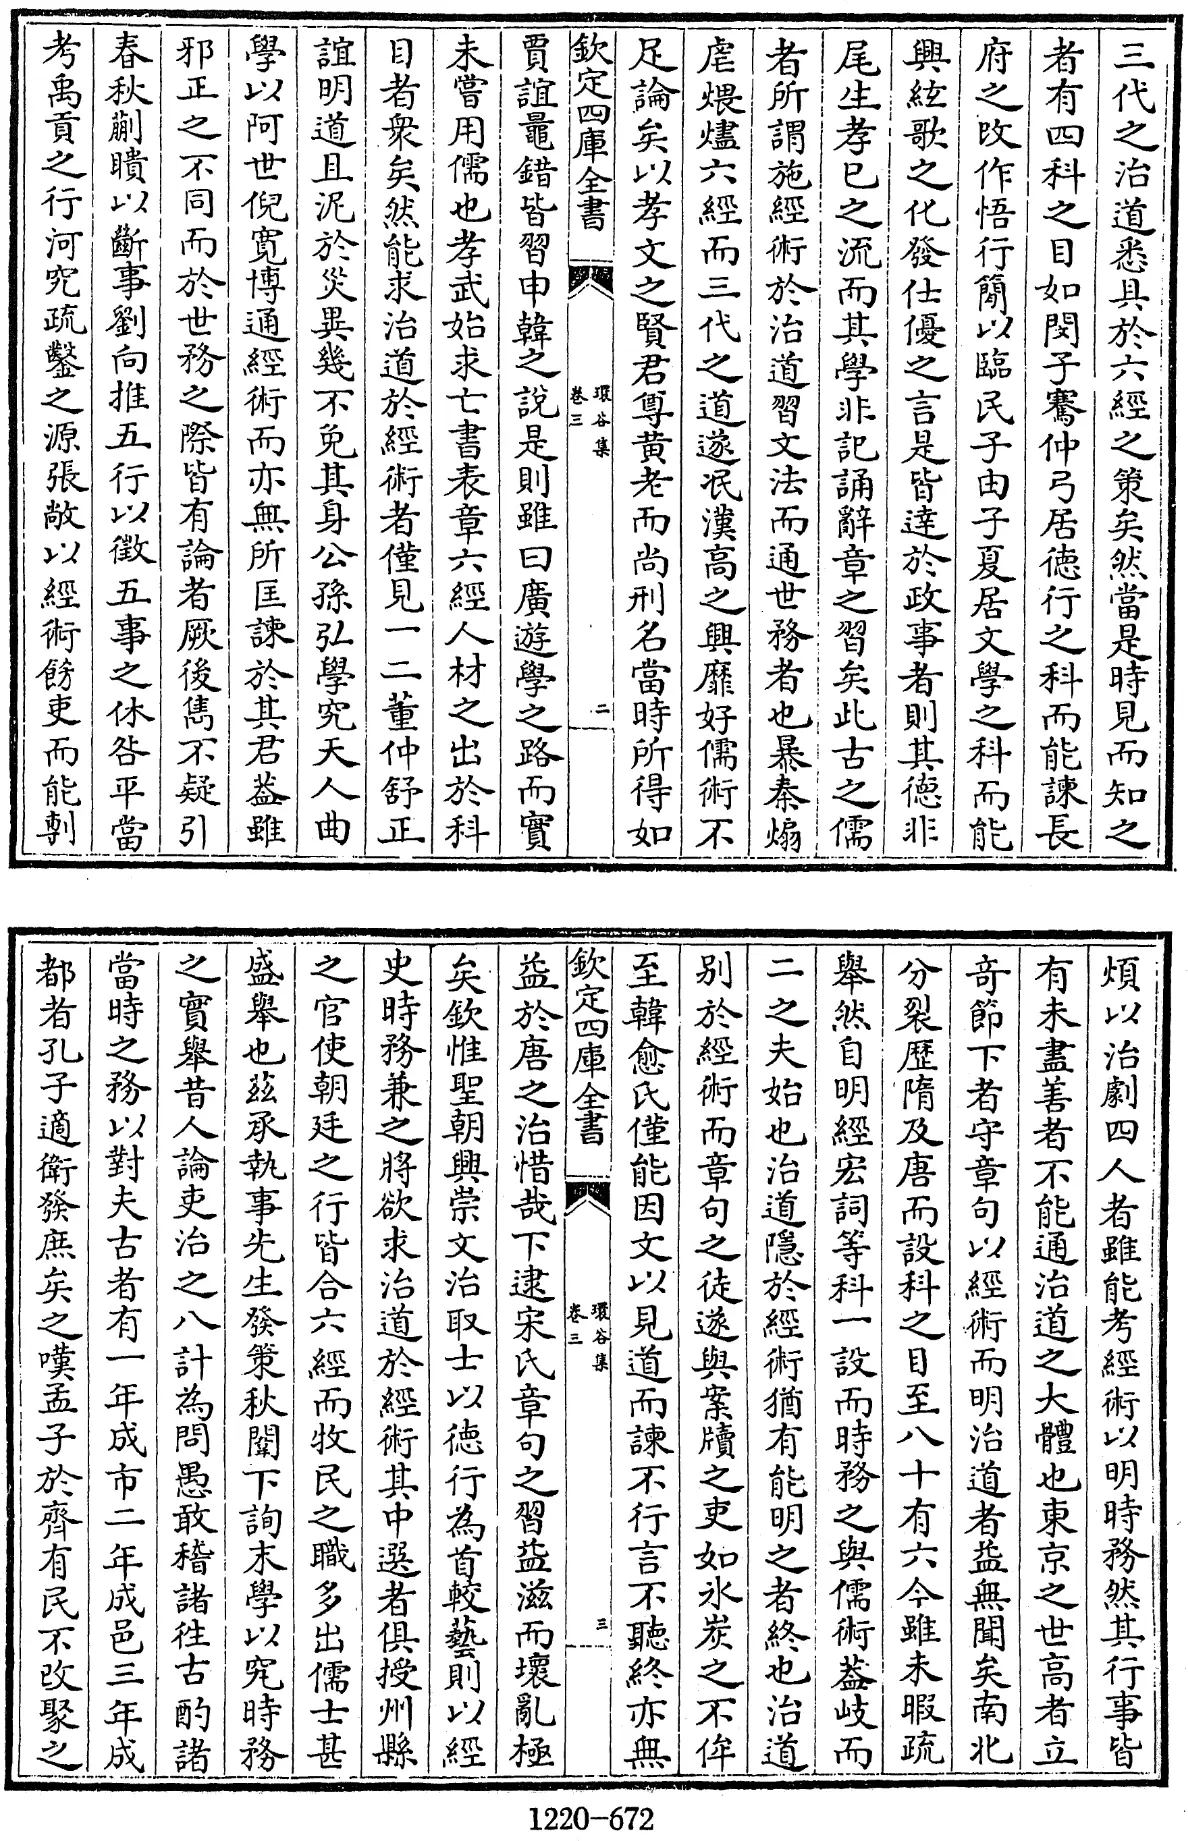 三代之治道悉具於六經之策矣然當是時見而知之
者有四科之目如閔子騫仲弓居德行之科而能諫長
府之改作悟行簡以臨民子由子夏居文學之科而能
興絃歌之化發仕優之言是皆達於政事者則其德非
尾生孝已之流而其學非記誦辭章之習矣此古之儒
者所謂施經術於治道習文法而通世務者也暴秦煽
虐煨燼六經而三代之道遂泯漢高之興靡好儒術不
足論矣以孝文之賢君尊黄老而尚刑名當時所得如
欽定四庫全書
環谷集
卷三
二
賈誼鼂錯皆習申韓之說是則雖曰廣遊學之路而實
未嘗用儒也孝武始求亡書表章六經人材之出於科
目者衆矣然能求治道於經術者僅見一二董仲舒正
誼明道且泥於災異幾不免其身公孫弘學究天人曲
學以阿世倪寬博通經術而亦無所匡諫於其君葢雖
邪正之不同而於世務之際皆有論者厥後雋不疑引
春秋蒯聵以斷事劉向推五行以徵五事之休咎平當
考禹貢之行河究疏鑿之源張敞以經術餝吏而能剸
煩以治劇四人者雖能考經術以明時務然其行事皆
有未盡善者不能通治道之大體也東京之世高者立
奇節下者守章句以經術而明治道者葢無聞矣南北
分裂歴隋及唐而設科之目至八十有六今雖未暇疏
舉然自明經宏詞等科一設而時務之與儒術葢岐而
二之夫始也治道隱於經術猶有能明之者終也治道
别於經術而章句之徒遂與案牘之吏如氷炭之不侔
至韓愈氏僅能因文以見道而諫不行言不聽終亦無
欽定四庫全書
環谷集
卷三
三
益於唐之治惜哉下逮宋氏章句之習益滋而壞亂極
矣欽惟聖朝興崇文治取士以德行為首較藝則以經
史時務兼之將欲求治道於經術其中選者俱授州縣
之官使朝廷之行皆合六經而牧民之職多出儒士甚
盛舉也茲承執事先生發策秋闈下詢末學以究時務
之實舉昔人論吏治之八計為問愚敢稽諸徃古酌諸
當時之務以對夫古者有一年成市二年成邑三年成
都者孔子適衛發庶矣之嘆孟子於齊有民不改聚之
1220-672